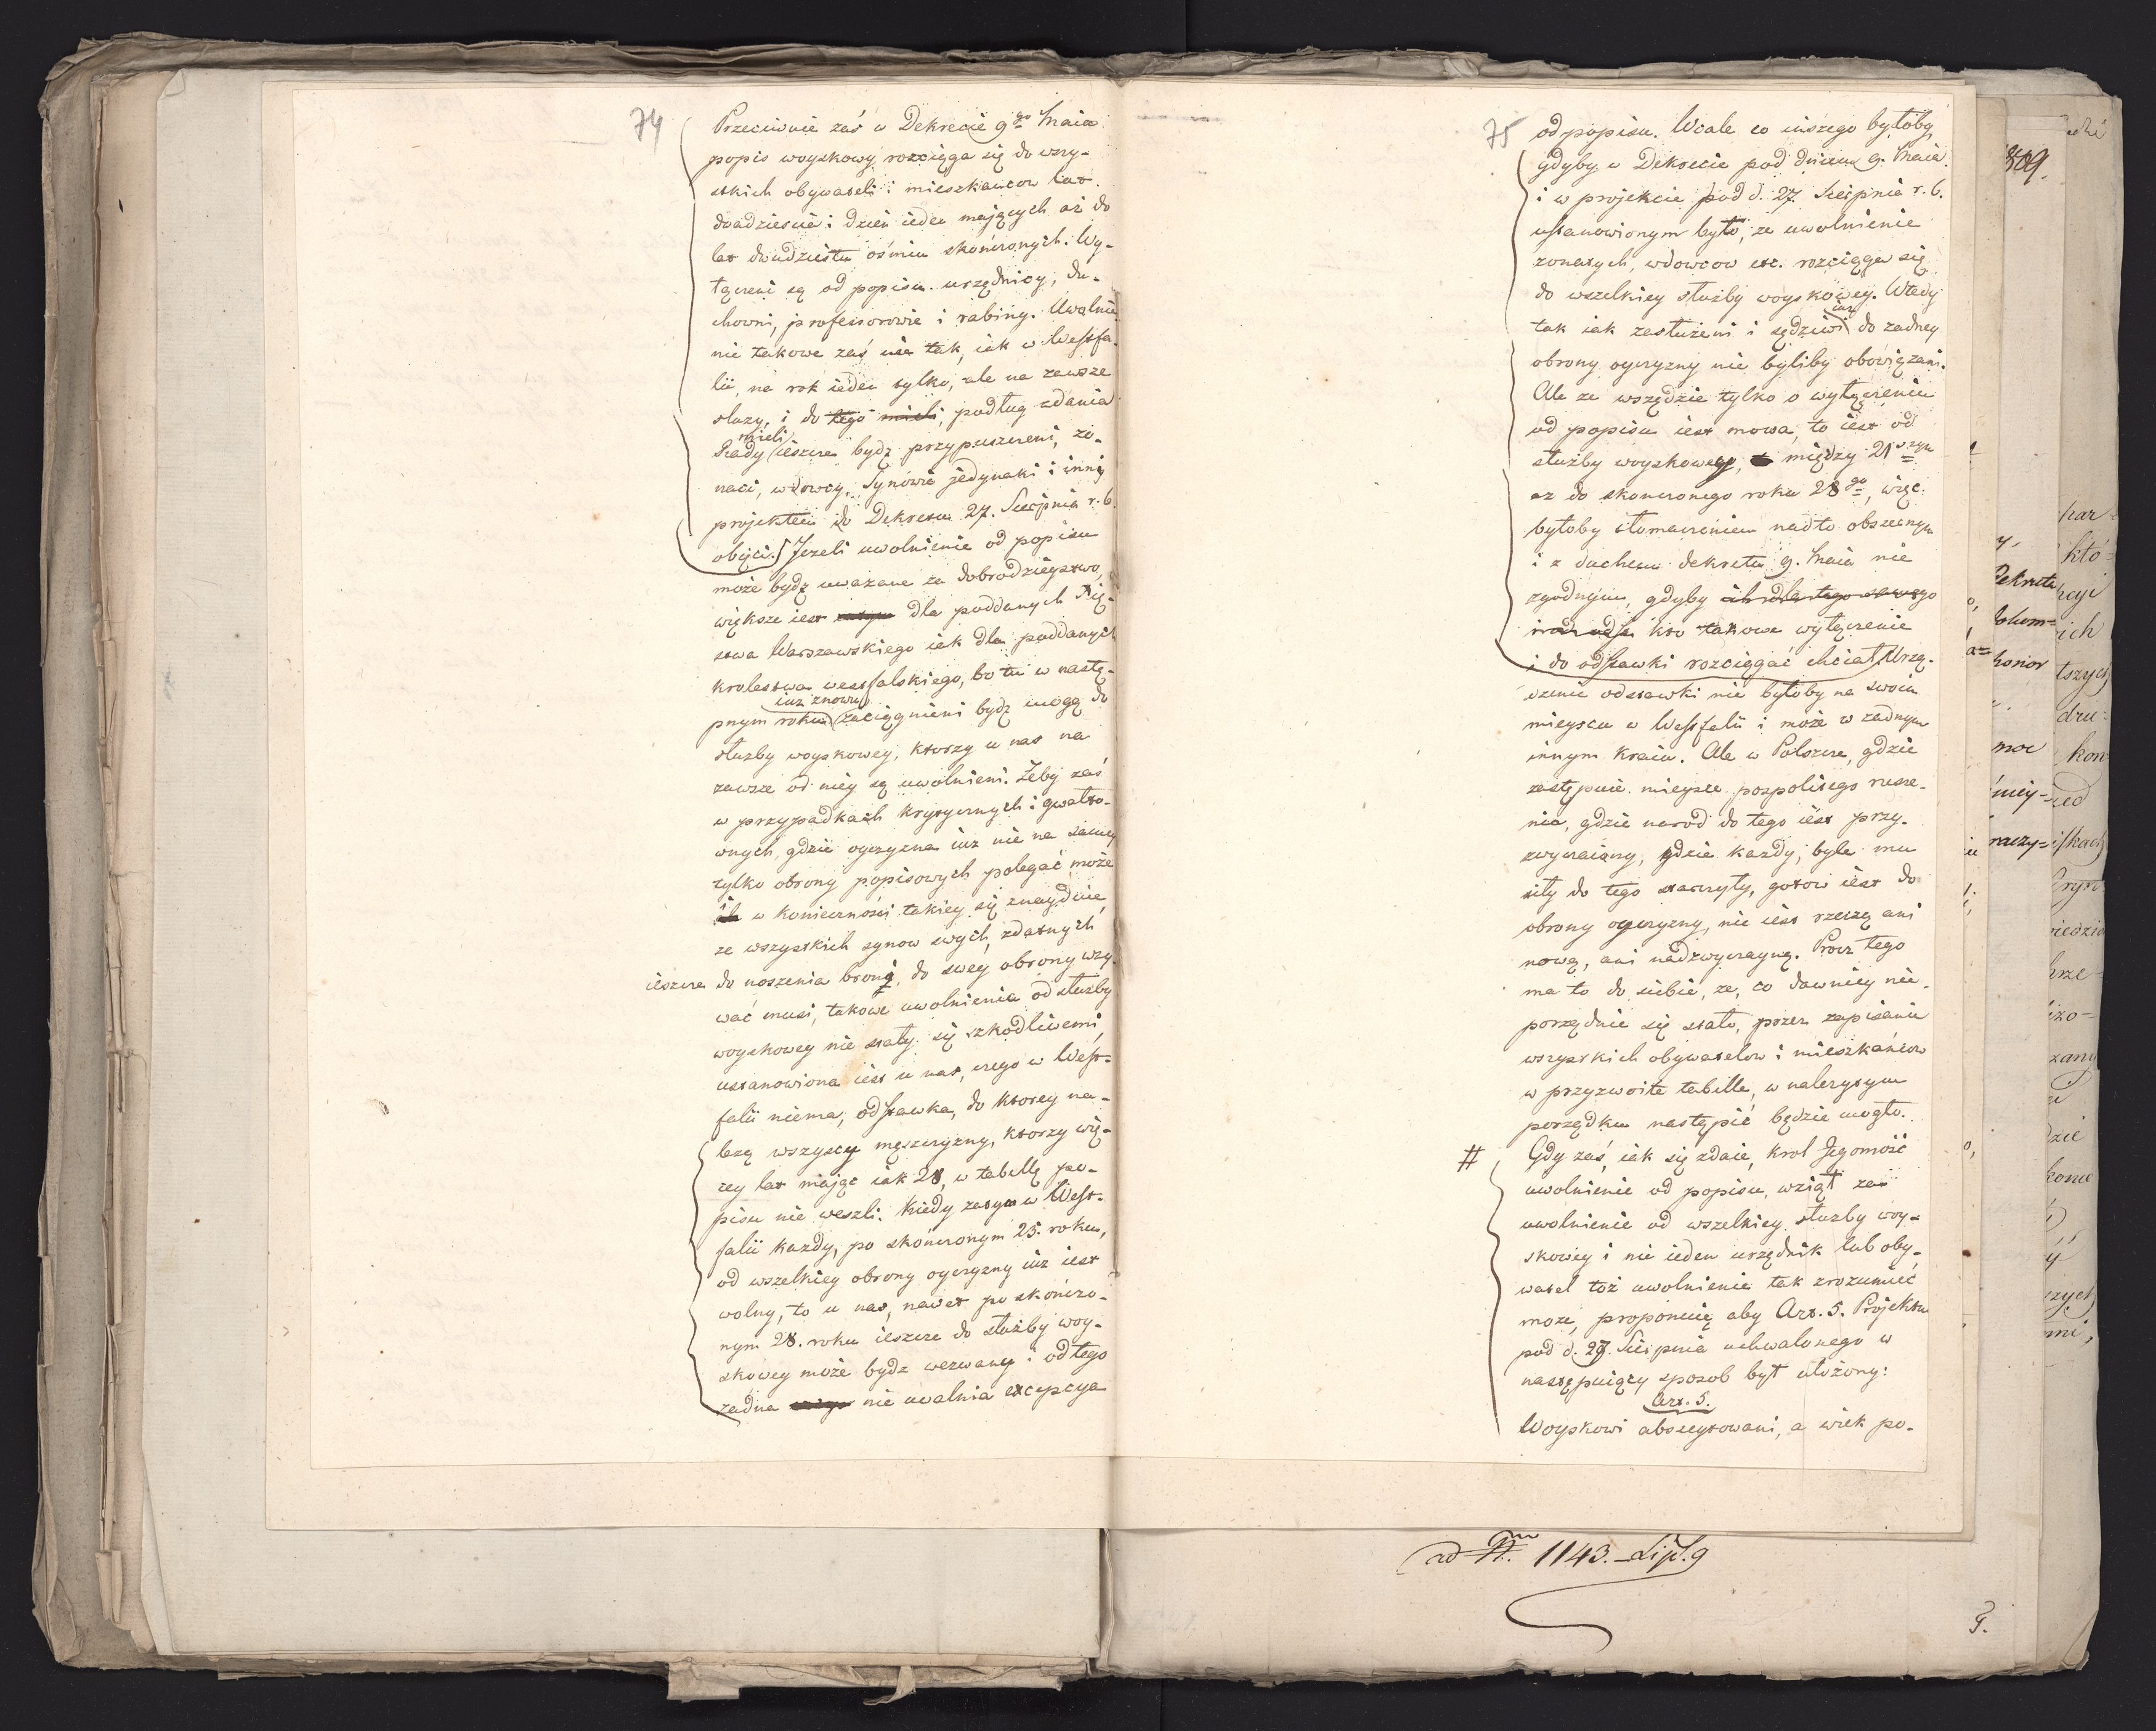 74
Przeciwnie zaś w Dekrecie 9go Maia
popis woyskowy rozciąga się do wszy-
stkich obywateli i mieszkancow lat
dwadziescia i dzień ieden maiących aż do
lat dwudziestu ośmiu skończonych. Wy-
łączeni są od popisu urzędnicy, du-
chowni, professorowie i rabiny. Uwolnie-
nie takowe zaś nie tak, iak w Westfa-
lii, na rok ieden tylko, ale na zawsze
służy, i do tego mieli, podług zdania
mieli
Rady ieszcze bydź przypuszczeni, żo-
naci, wdowcy, Synowie jedynaki i inni
projektem do Dekretu 27. Sierpnia r. b.
obięci. Jeżeli uwolnienie od popisu
może bydź uważane za dobrodzieystwo,
większe iest dla poddanych Xię-
stwa Warszawskiego iak dla poddanych
krolestwa westfalskiego, bo tu w nastę-
iuż znowu
pnym roku zaciągnieni bydź mogą do
służby woyskowey, ktorzy u nas na
zawsze od niey są uwolnieni. Żeby zaś
w przypadkach krytycznych i gwałto-
wnych, gdzie oyczyzna iuż nie na samey
tylko obrony popisowych polegać może
i w konieczności takiey się znayduie,
ze wszystkich synow swych, zdatnych
ieszcze do noszenia broni, do swey obrony wzy-
wać musi, takowe uwolnienia od służby
woyskowey nie stały się szkodliwemi,
ustanowiona iest u nas, czego w West-
falii niema, odstawka, do ktorey na-
leżą wszyscy męszczyzny, ktorzy wię-
cey lat maiąc iak 28, w tabellę po-
pisu nie weszli. Kiedy zatym w West-
falii każdy, po skonczonym 25. roku,
od wszelkiey obrony oyczyzny iuż iest
wolny, to u nas, nawet po skończo-
nym 28. roku ieszcze do służby woy-
skowey może bydź wezwany i od tego
żadna nie uwalnia excepcya
75
od popisu. Wcale co inszego byłoby,
gdyby w Dekrecie pod dniem 9. Maia
i w projekcie pod d. 27. Sierpnia r. b.
ustanowionym było, że uwolnienie
żonatych, wdowcow etc. rozciąga się
do wszelkiey służby woyskowey. Wtedy
iuż
tak iak zasłużeni i sędziwi do żadney
obrony oyczyzny nie byliby obowiązani.
Ale że wszędzie tylko o wyłączeniu
od popisu iest mowa, to iest od
służby woyskowey, między 21szym
aż do skonczonego roku 28go, więc
byłoby tłomaczeniem nadto obszernym
i z duchem dekretu 9. Maia nie
zgodnym, gdyby ich dla tego samego
kto takowe wyłączenie
i do odstawki rozciągać chciał. Urzą-
dzenie odstawki nie byłoby na swoim
mieyscu w Westfalii i może w żadnym
innym kraiu. Ale w Polszcze, gdzie
zastępuie mieysce pospolitego rusze-
nia, gdzie narod do tego iest przy-
zwyczaiony, gdzie każdy, byle mu
siły do tego starczyły, gotow iest do
obrony oyczyzny, nie iest rzeczą ani
nową, ani nadzwyczayną. Procz tego
ma to do siebie, że, co dawniey nie-
porządnie się stało, przez zapisanie
wszystkich obywatelow i mieszkańcow
w przyzwoite tabelle, w należytym
porządku nastąpić będzie mogło.
# Gdy zaś, iak się zdaie, Krol Jegomość
uwolnienie od popisu, wziął za
uwolnienie od wszelkiey służby woy-
skowey i nie ieden urzędnik lub oby-
watel toż uwolnienie tak zrozumieć
może, proponuię aby Art. 5. Projektu
pod d. 27. Sierpnia uchwalonego w
następuiący sposob był ułożony:
Art. 5.
Woyskowi abszeytowani, a wiek po-
ad Nrum 1143. Lipl. 9